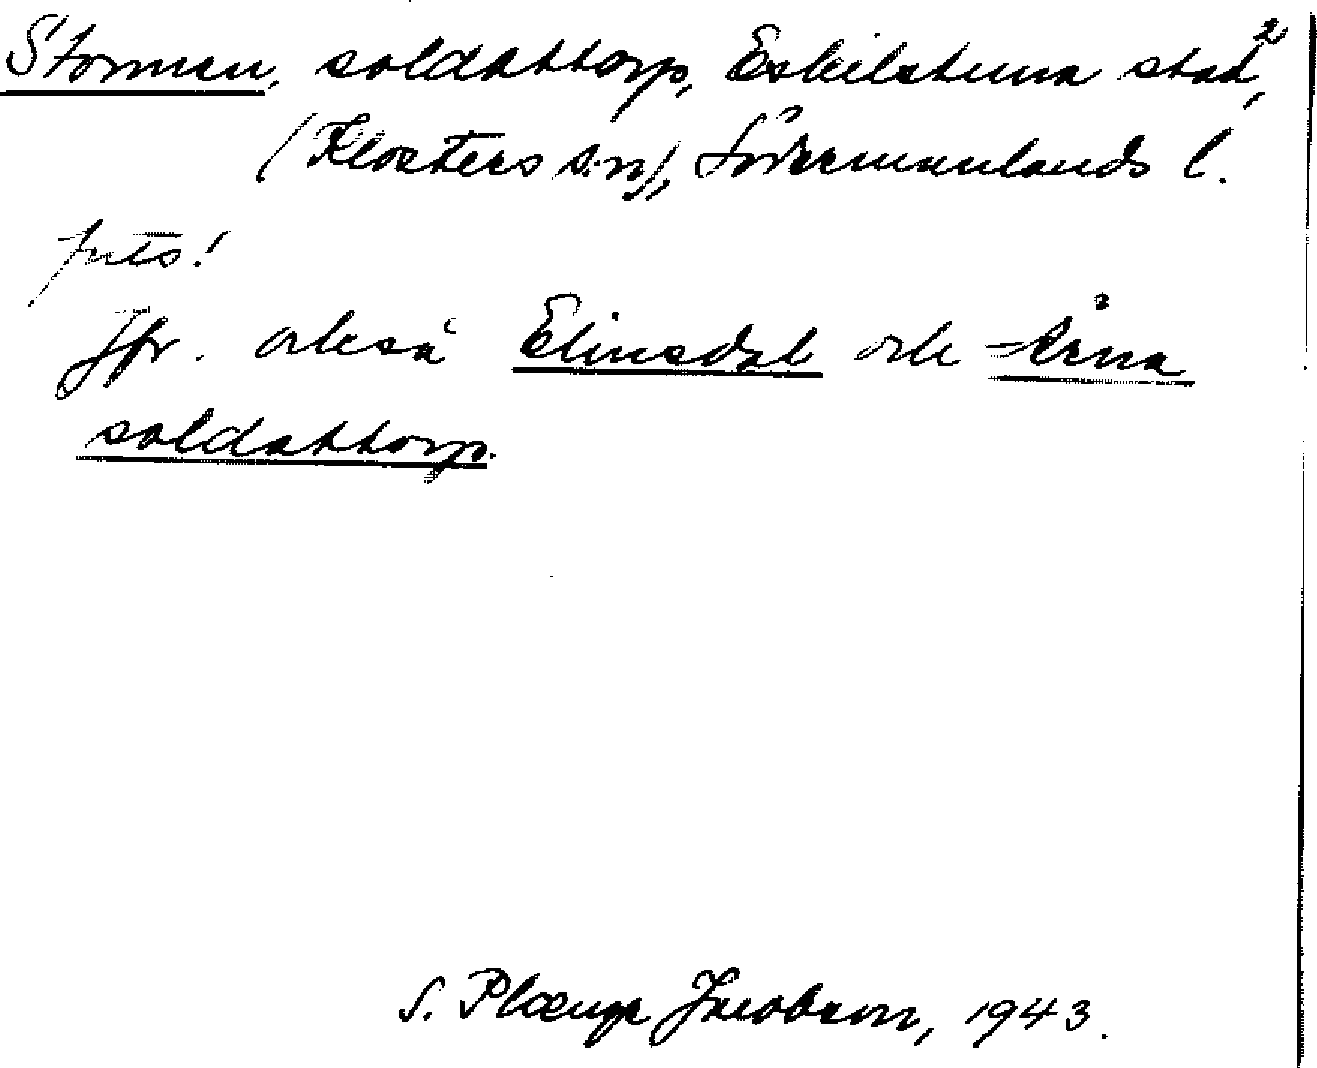 Stormen, soldattorp, Eskilstuna stad,
(Klosters sn), Södermanlands l.
Jfr. också Elinsdal och Årna
soldattorp.
S. Plænge Jacobson, 1943.